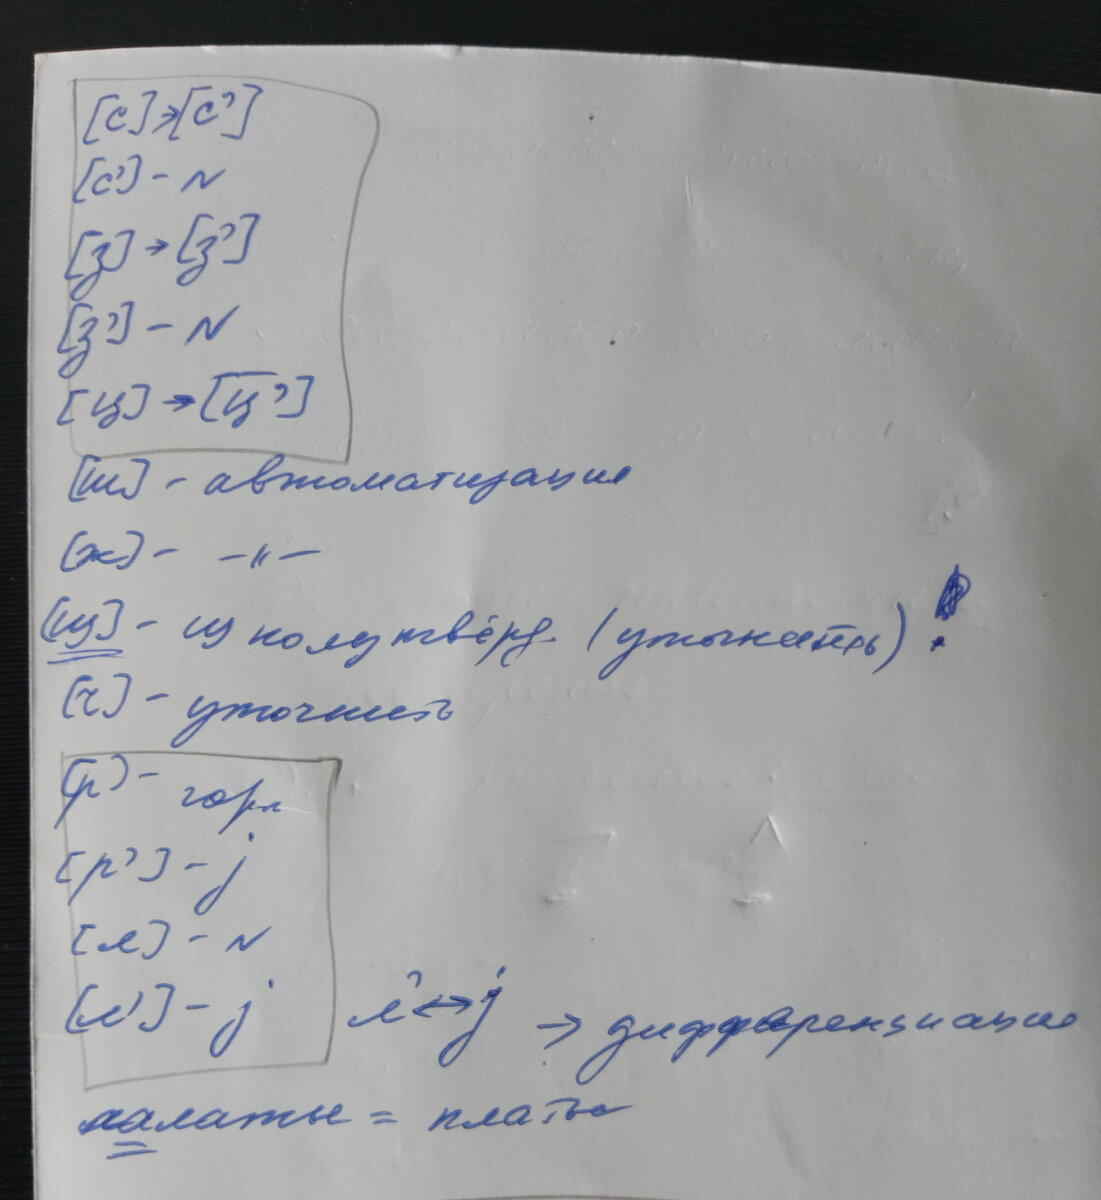 [с]→[с']
[с'] - N
[з]→[з']
[з'] - N
[ц]→[ц']
[ш] - автоматизация
[ж] - -"-
[щ] - щ полутвёрд. (уточнить)!
[ч] - уточнить
[р] - горл
[р'] - j
[л] - N
[л'] - j л'↔j → дифференциация
= платье